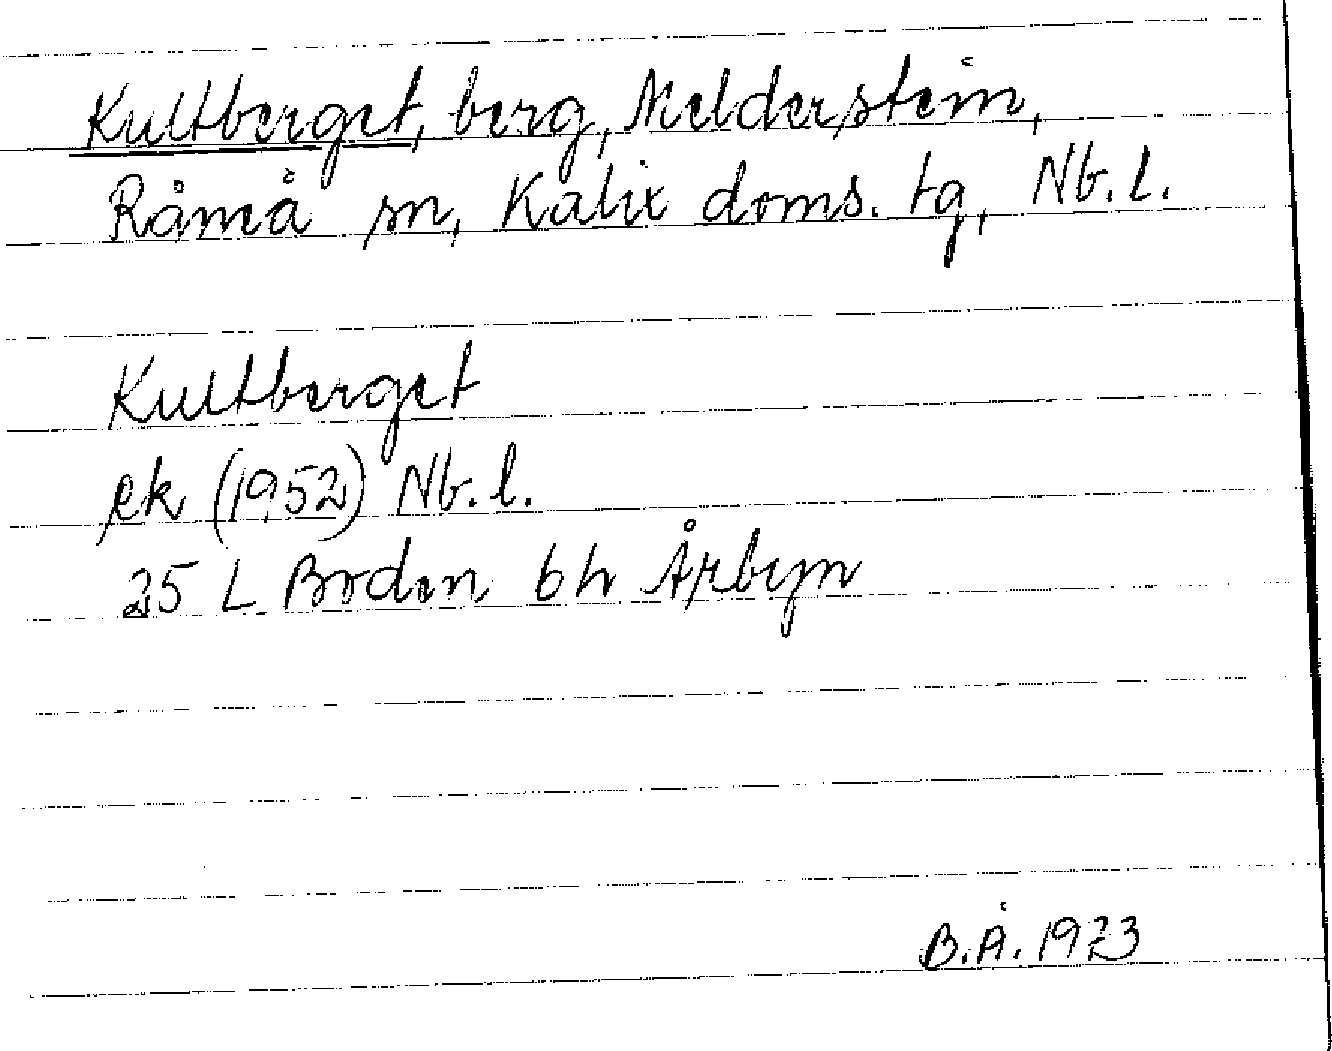 Kultberget, berg, Melderstein,
Råneå sn, Kalix doms. tg, Nb. l.
Kultberget
ek (1952) Nb. l.
25 L Boden 6h Årbyn
B.Å. 1973